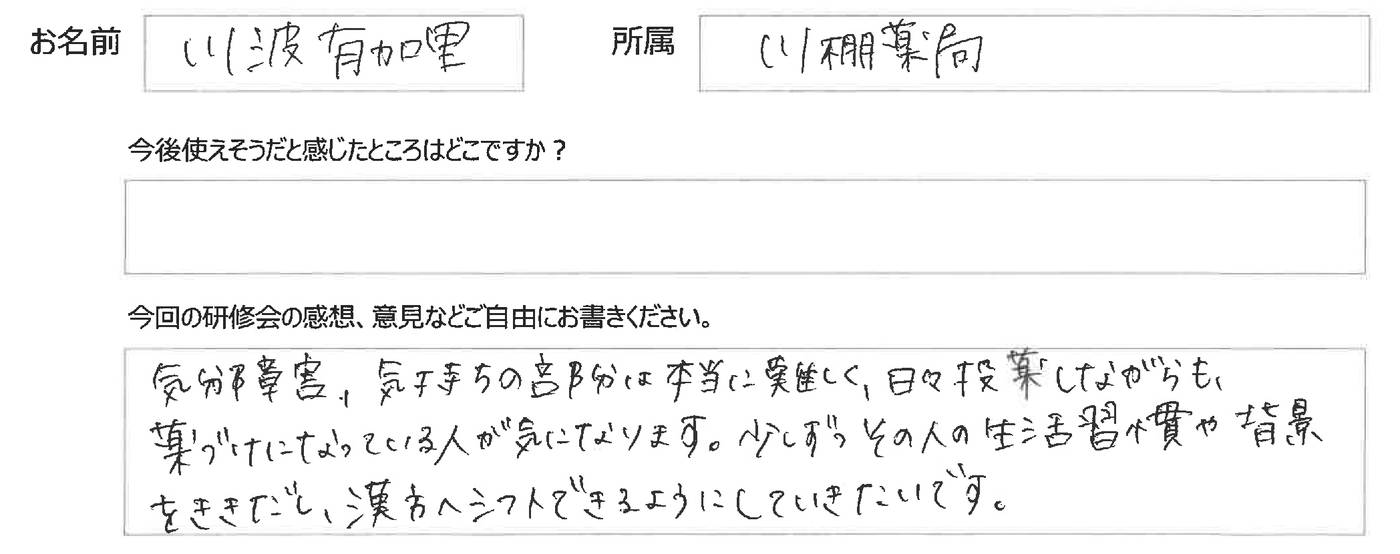 お名前 川波有加里 所属 川棚薬局
今後使えそうだと感じたところはどこですか？
今回の研修会の感想、意見などご自由にお書きください。
気分障害、気持ちの部分は本当に難しく、日々投薬しながらも、
薬づけになっている人が気になります。少しずつその人の生活習慣や背景
をききだし、漢方へシフトできるようにしていきたいです。